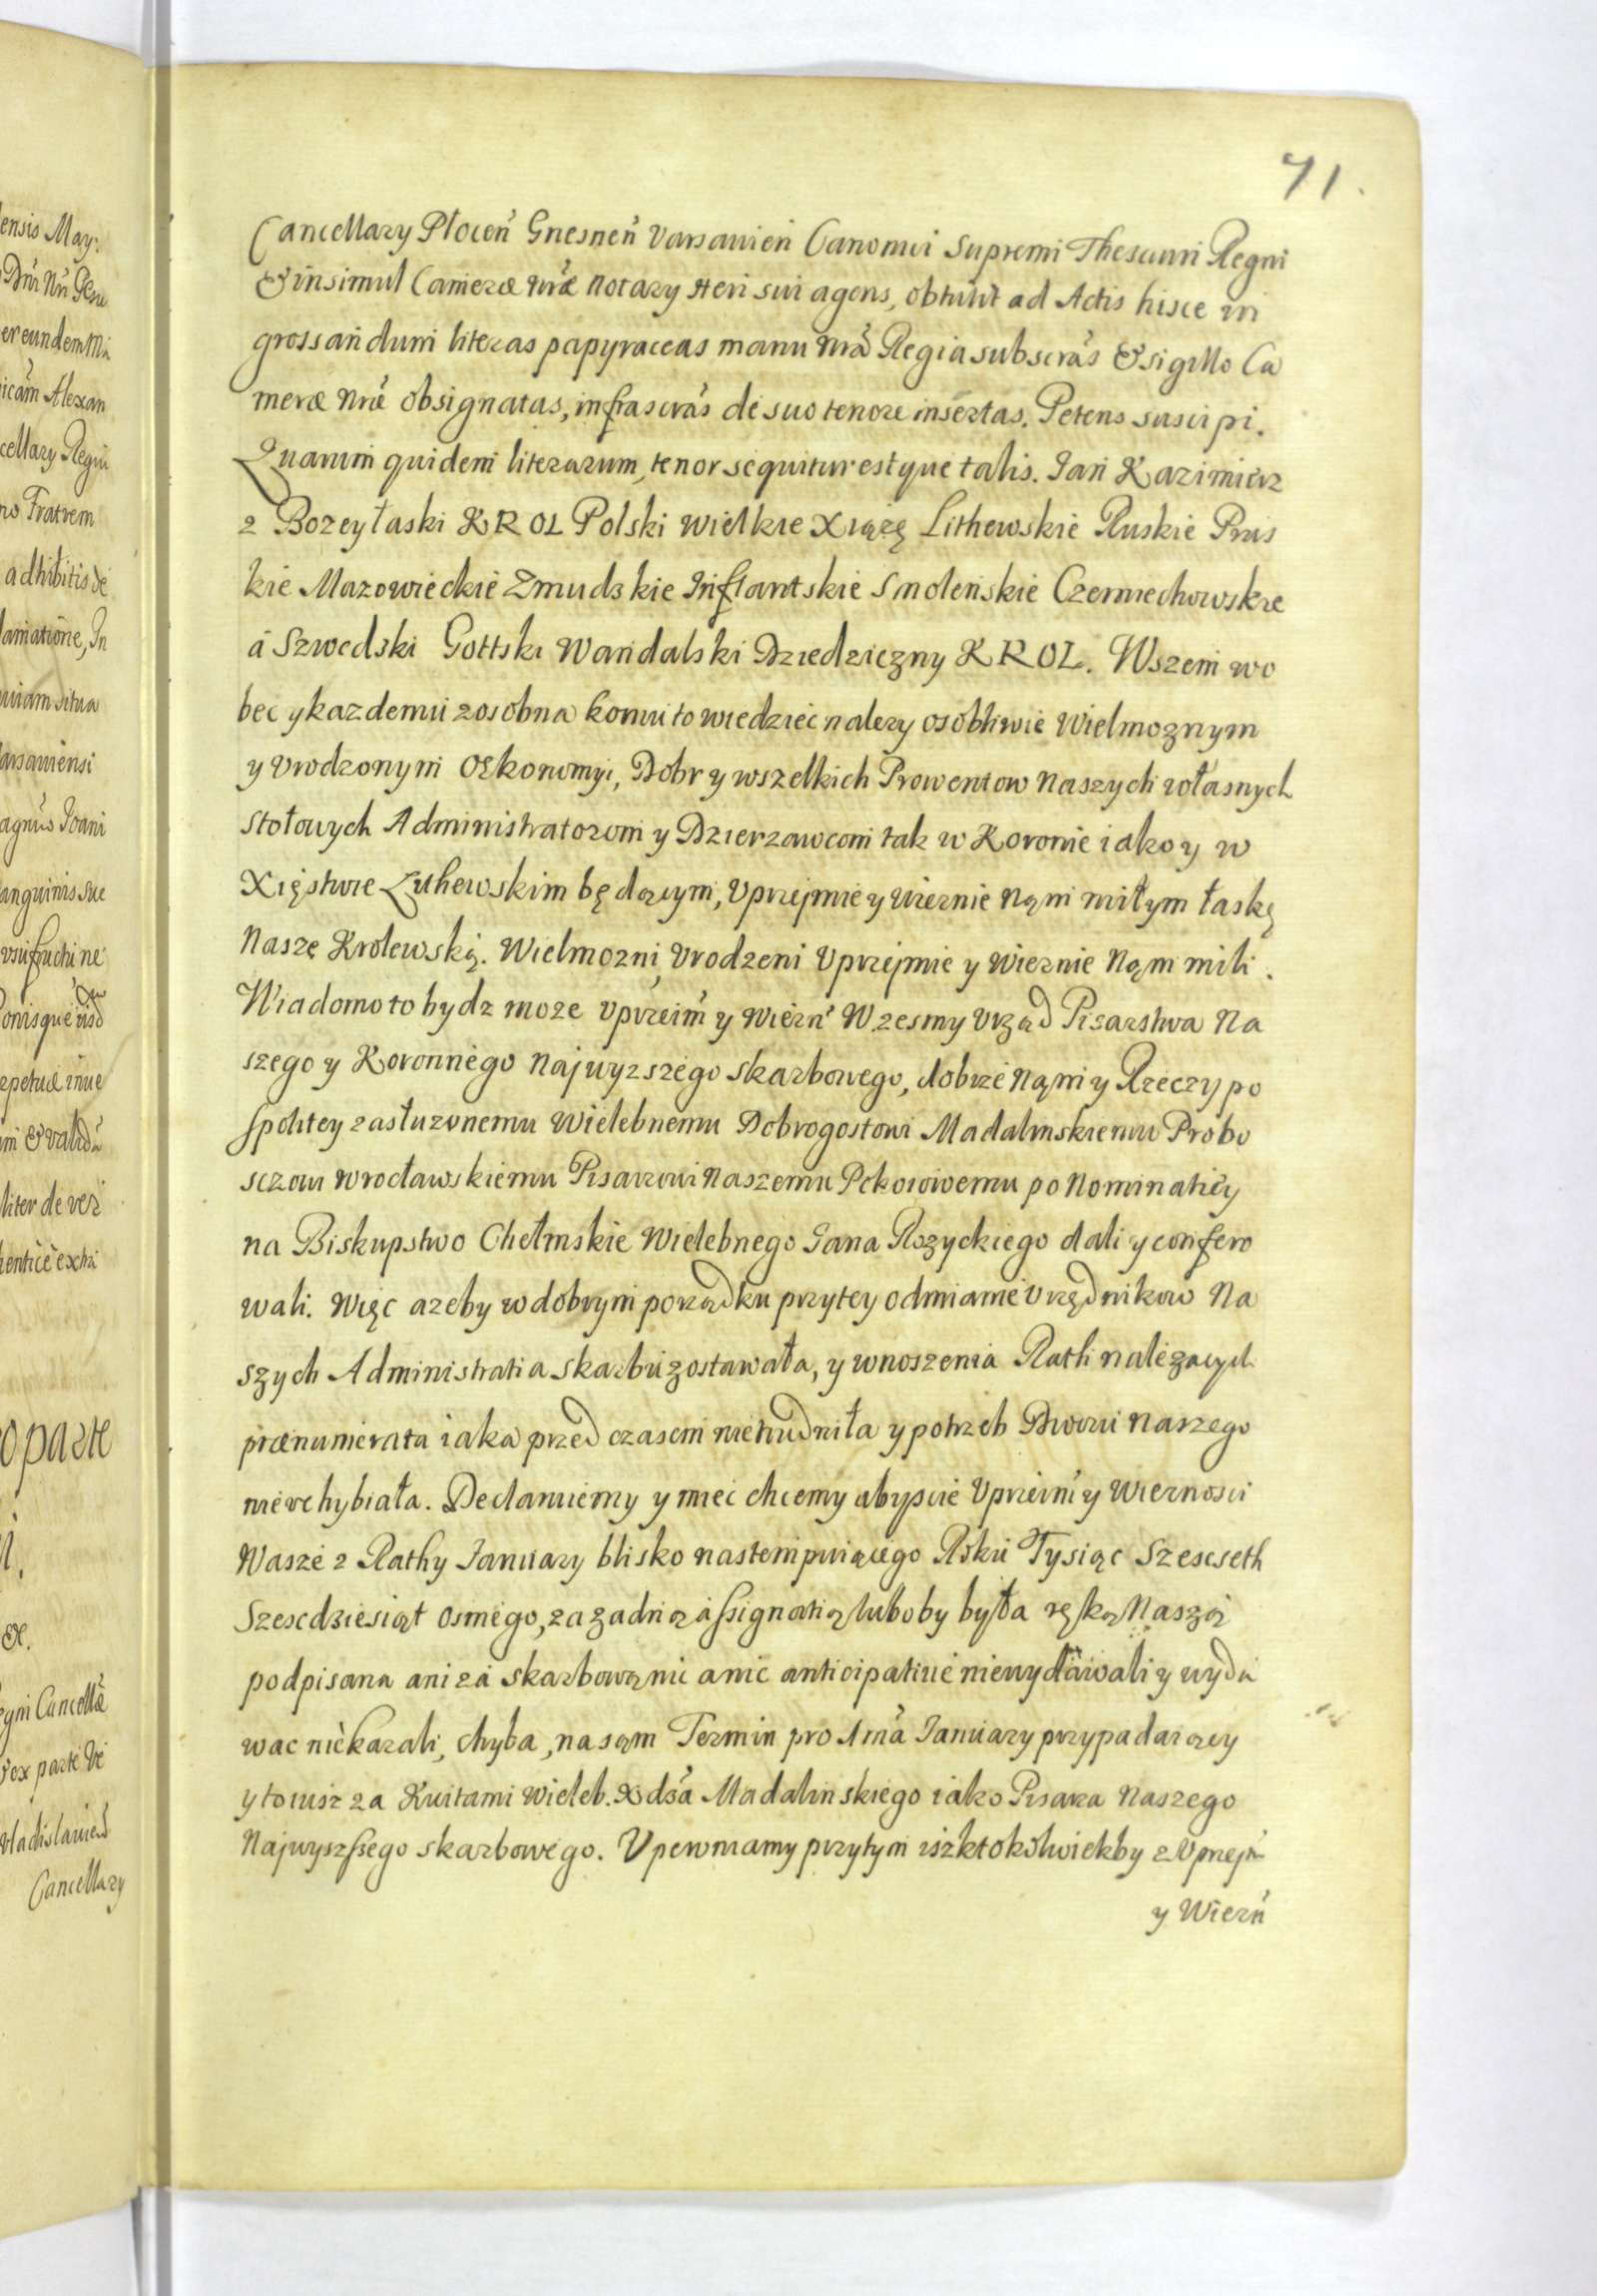 71.
Cancellary Płoceń Gnesneń Varsavień Canonici Supremi Thesauri Regni
& insimul Cameræ nr̃æ Notary Heri sui agens, obtulit ad Actis hisce in
grossandum literas papyraceas manu nr̃a Regia subscr̃as & sigillo Ca
meræ nr̃æ obsignatas, infrascr̃as de suo tenore insertas. Petens suscipi.
Quarum quidem literarum, tenor sequitur estque talis. Jan Kazimierz
z Bozey łaski KROL Polski wielkie Xiążę Lithewskie Ruskie Prus
kie Mazowieckie Zmudzkie Inflantskie Smolenskie Czerniechowskie
á Szwedski Gottski Wandalski Dziedziczny KROL. Wszem wo
bec y kazdemu zosobna komu to wiedziec nalezy osobliwie Wielmoznym
y Vrodzonym Oekonomyi, Dobr y wszelkich Prowentow Naszych własnych
Stołowych Administratorom y Dzierzawcom tak w Koronie iako y w
Xięstwie Lithewskim będącym, Vprzejmie y Wiernie Nąm miłym łaskę
Naszę Krolewską. Wielmozni Vrodzeni Vprzejmie y Wiernie Nąm mili.
Wiadomo to bydz moze Vprzeim̃ y Wierñ Wzesmy Vrząd Pisarstwa Na
szego y Koronnego Najwyzszego skarbowego, dobrze Nąm y Rzeczypo
spolitey zasłuzonemu Wielebnemu Dobrogostowi Madalinskiemu Probo
sczowi Wrocławskiemu Pisarzowi Naszemu Pokoiowemu po Nominatiey
na Biskupstwo Chełmskie Wielebnego Jana Rozyckiego dali y confero
wali. Więc azeby w dobrym porządku przytey odmianie Vrzędnikow Na
szych Administratia skarbu zostawała, y wnoszenia Rath nalezących
prænumerata iaka przed czasem nietrudniła y potrzeb Dworu Naszego
nievchybiała. Declaruiemy y miec chcemy abyscie Vprzeim̃ y Wiernosci
Wasze z Rathy January blisko nastempuiącego Roku Tysiąc Szescseth
Szescdziesiąt osmego, za zadną assignatią luboby była ręką Naszą
podpisana ani za skarbową nic a nic anticipative niewydawali y wyda
wac niekazali, chyba, na sąm Termin pro 1mã January przypadaiący
y to iusz za Kwitami Wieleb. Xdzã Madalinskiego iako Pisarza Naszego
Najwyszszego skarbowego. Vpewniamy przytym isz ktokolwiekby z Vprzejm̃
y Wierñ